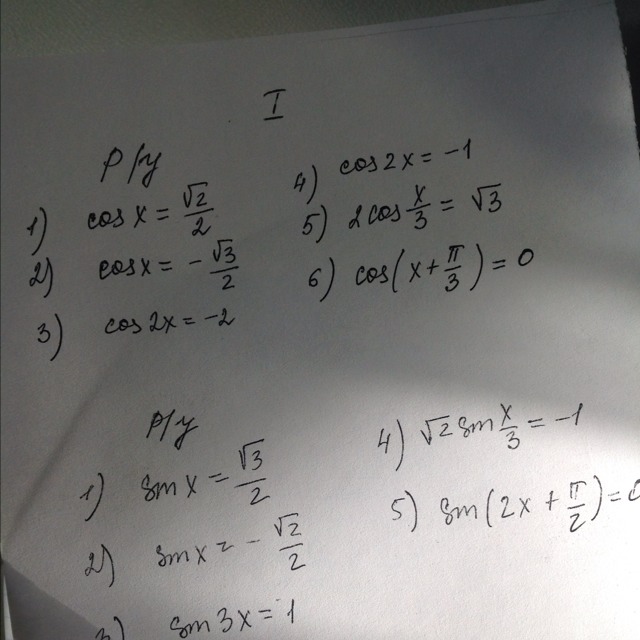 I
P/y
1) cos x = √2/2
2) cos x = - √3/2
3) cos 2x = -2
4) cos 2x = -1
5) 2 cos x/3 = √3
6) cos(x + π/3) = 0
P/y
1) sin x = √3/2
2) sin x = - √2/2
3) sin 3x = 1
4) √2 sin x/3 = -1
5) sin(2x + π/2) = 0